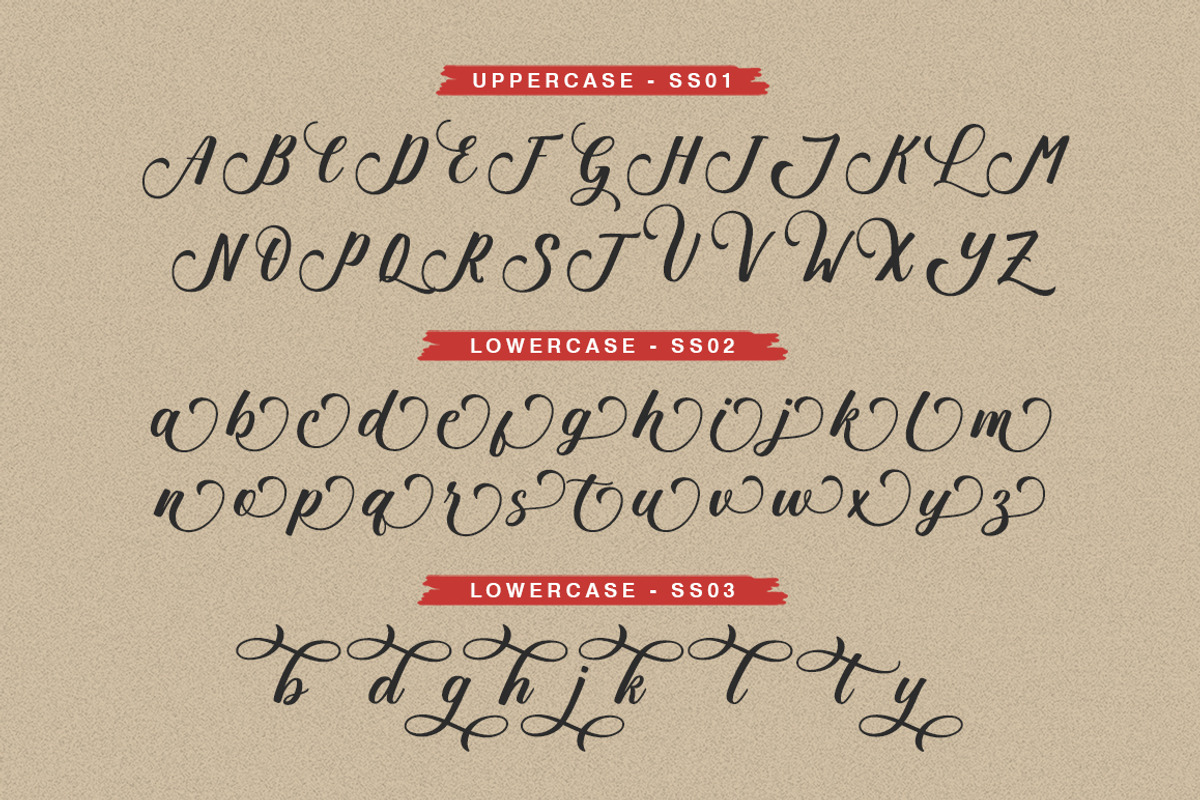 UPPERCASE - SS01
A B C D E F G H I J K L M
N O P Q R S T U V W X Y Z
LOWERCASE - SS02
a b c d e f g h i j k l m
n o p q r s t u v w x y z
LOWERCASE - SS03
b d g h j k l t y